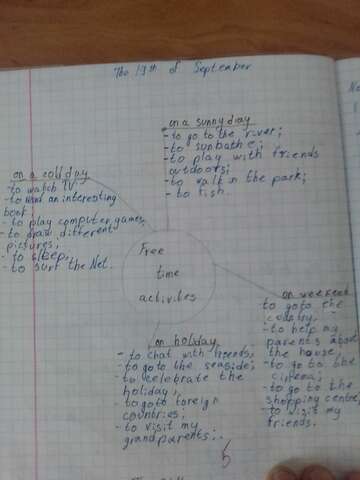 The 19th of September
on a sunny day
- to go to the river;
- to sunbathe;
- to play with friends
outdoors;
- to walk in the park;
- to fish.
on a cold day
- to watch TV
- to read an interesting
book;
- to play computer games
- to draw different
pictures;
- to sleep;
- to surf the Net.
Free
time
activites
on weekend
to go to the
country,
- to help my
parents about
the house,
- to go to the
cinema;
- to go to the
shopping centre,
- to visit my
friends.
on holiday
- to chat with friends,
- to go to the seaside;
- to celebrate the
holiday,
- to go to foreign
countries;
- to visit my
grandparents..